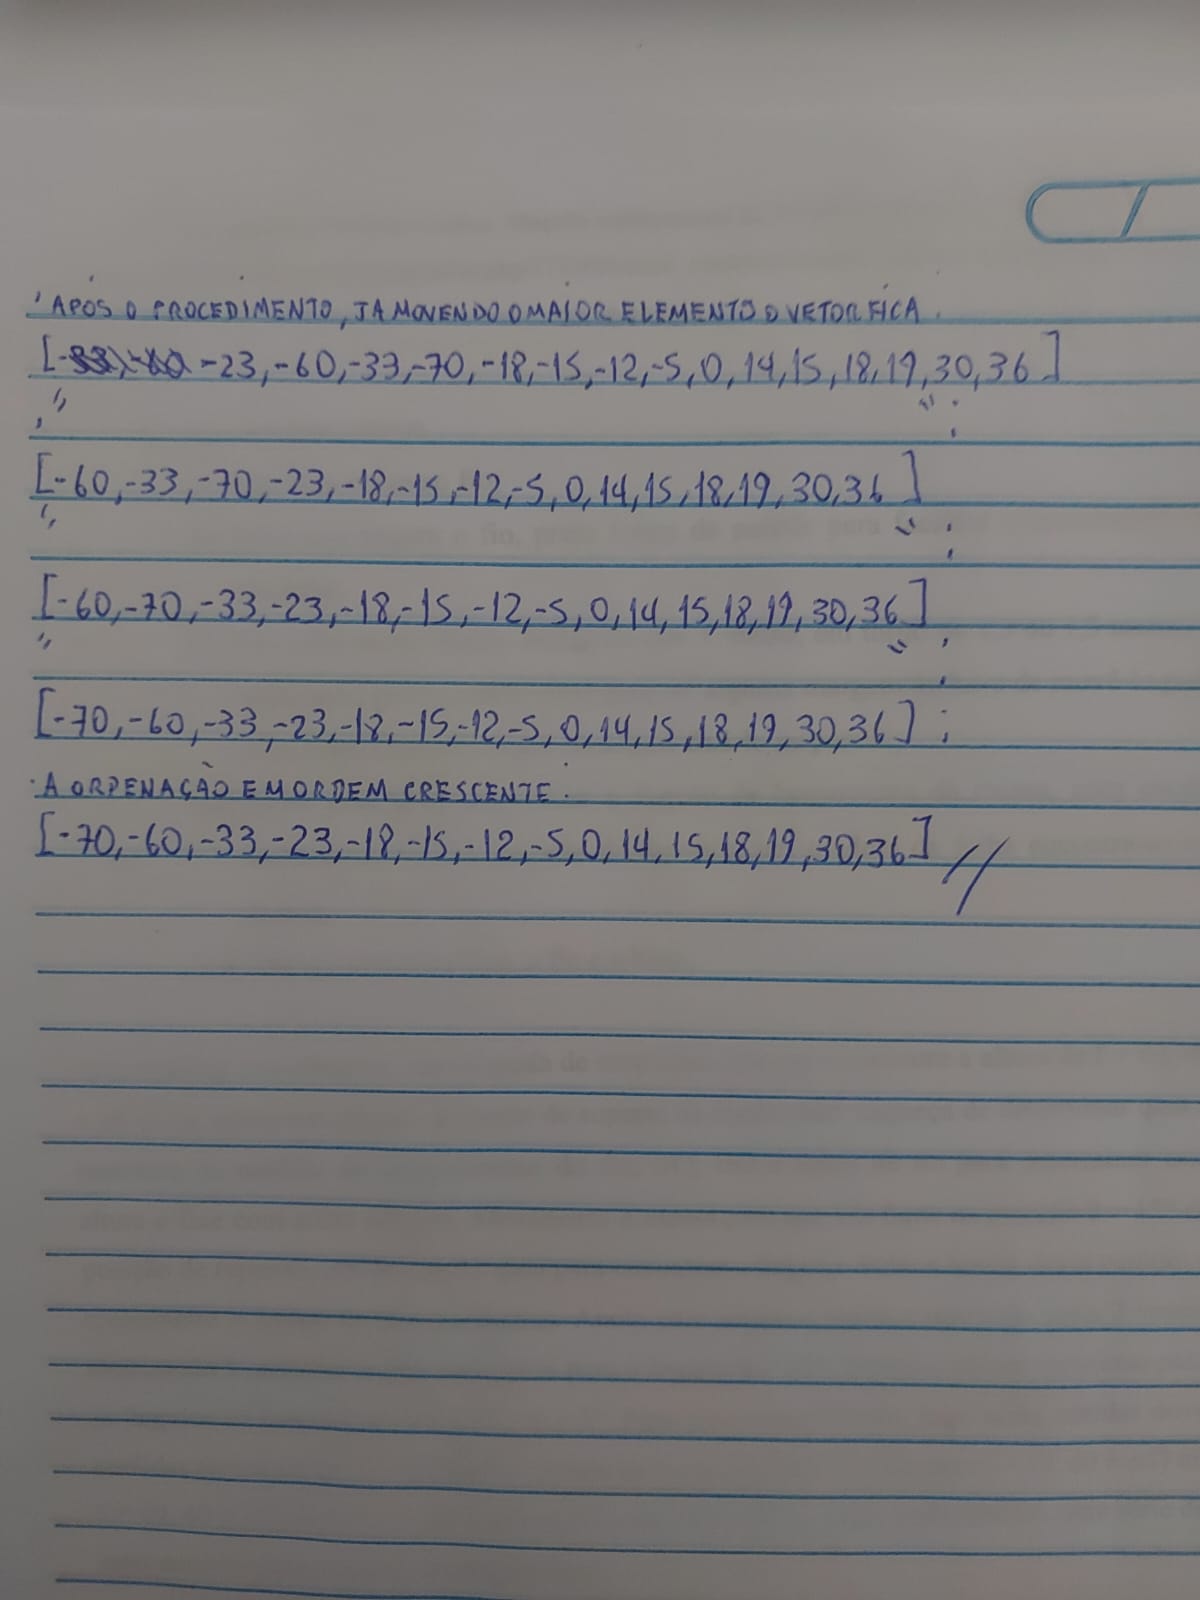 APÓS O PROCEDIMENTO, JA MOVENDO O MAIOR ELEMENTO O VETOR FICA.
[-23, -60, -33, -70, -18, -15, -12, -5, 0, 14, 15, 18, 19, 30, 36]
[-60, -33, -70, -23, -18, -15, -12, -5, 0, 14, 15, 18, 19, 30, 36]
[-60, -70, -33, -23, -18, -15, -12, -5, 0, 14, 15, 18, 19, 30, 36]
[-70, -60, -33, -23, -18, -15, -12, -5, 0, 14, 15, 18, 19, 30, 36];
A ORDENAÇÃO EM ORDEM CRESCENTE.
[-70, -60, -33, -23, -18, -15, -12, -5, 0, 14, 15, 18, 19, 30, 36] //